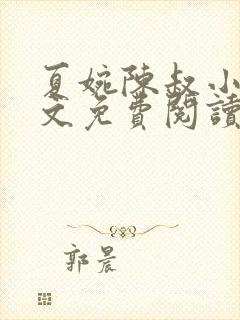 夏婉陳叔小
文免費閱讀
郭晨